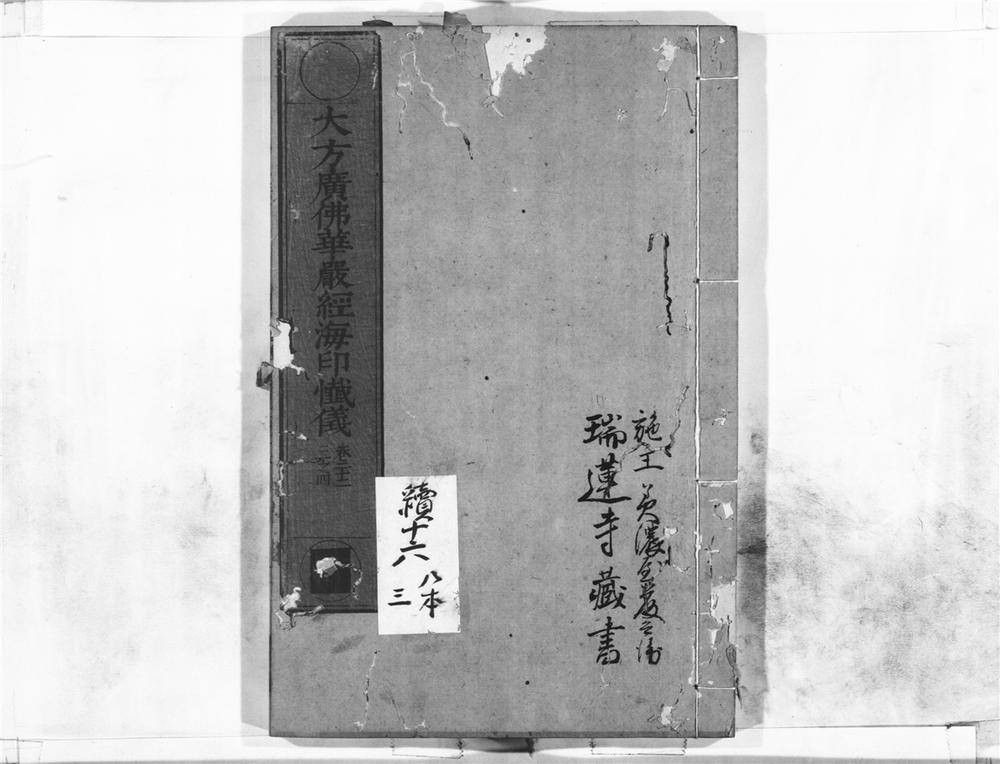 施主 美濃屋
瑞蓮寺藏書
續十六
八本
三
大方廣佛華嚴經海印懺儀